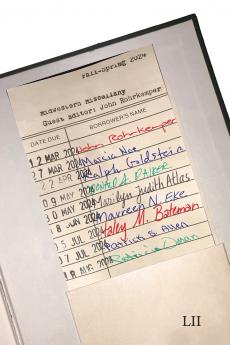 Fall-Spring 2024
Midwestern Miscellany
Guest Editor: John Rohrkemper
DATE DUE BORROWER'S NAME
12 MAR 2024 John Rohrkemper
27 MAR 2024 Marcia Noe
22 APR 2024 Ralph Goldstein
09 MAY 2024
30 MAY 2024 Marilyn Judith Atlas
18 JUN 2024 Maureen N. Eke
05 JUL 2024 Haley M. Bateman
JUL 2024 Patricia S. Allen
AUG 2024 Patricia Oman
LII